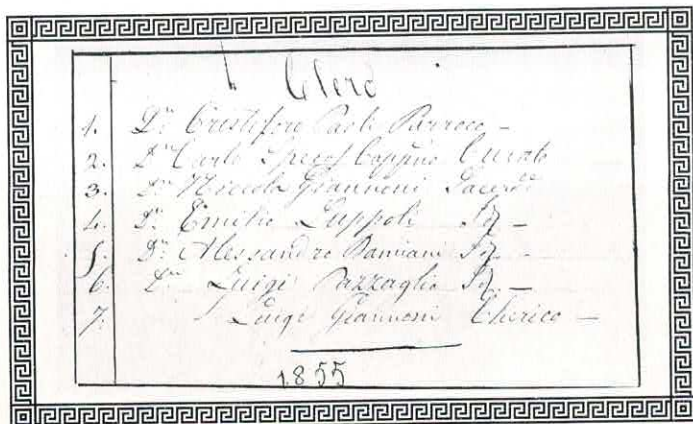 Clero
1. Dn. Cristoforo Paoli Parroco -
2. Dn Carlo Cappno Curato
3. Dn Niccola Giannoni Sacerdte
4. Dn. Emilio Luppoli -
5. Dn. Alessandro Damiani -
6. Dn Luigi Pazzaglia -
7. Luigi Giannoni Chirico -
1855